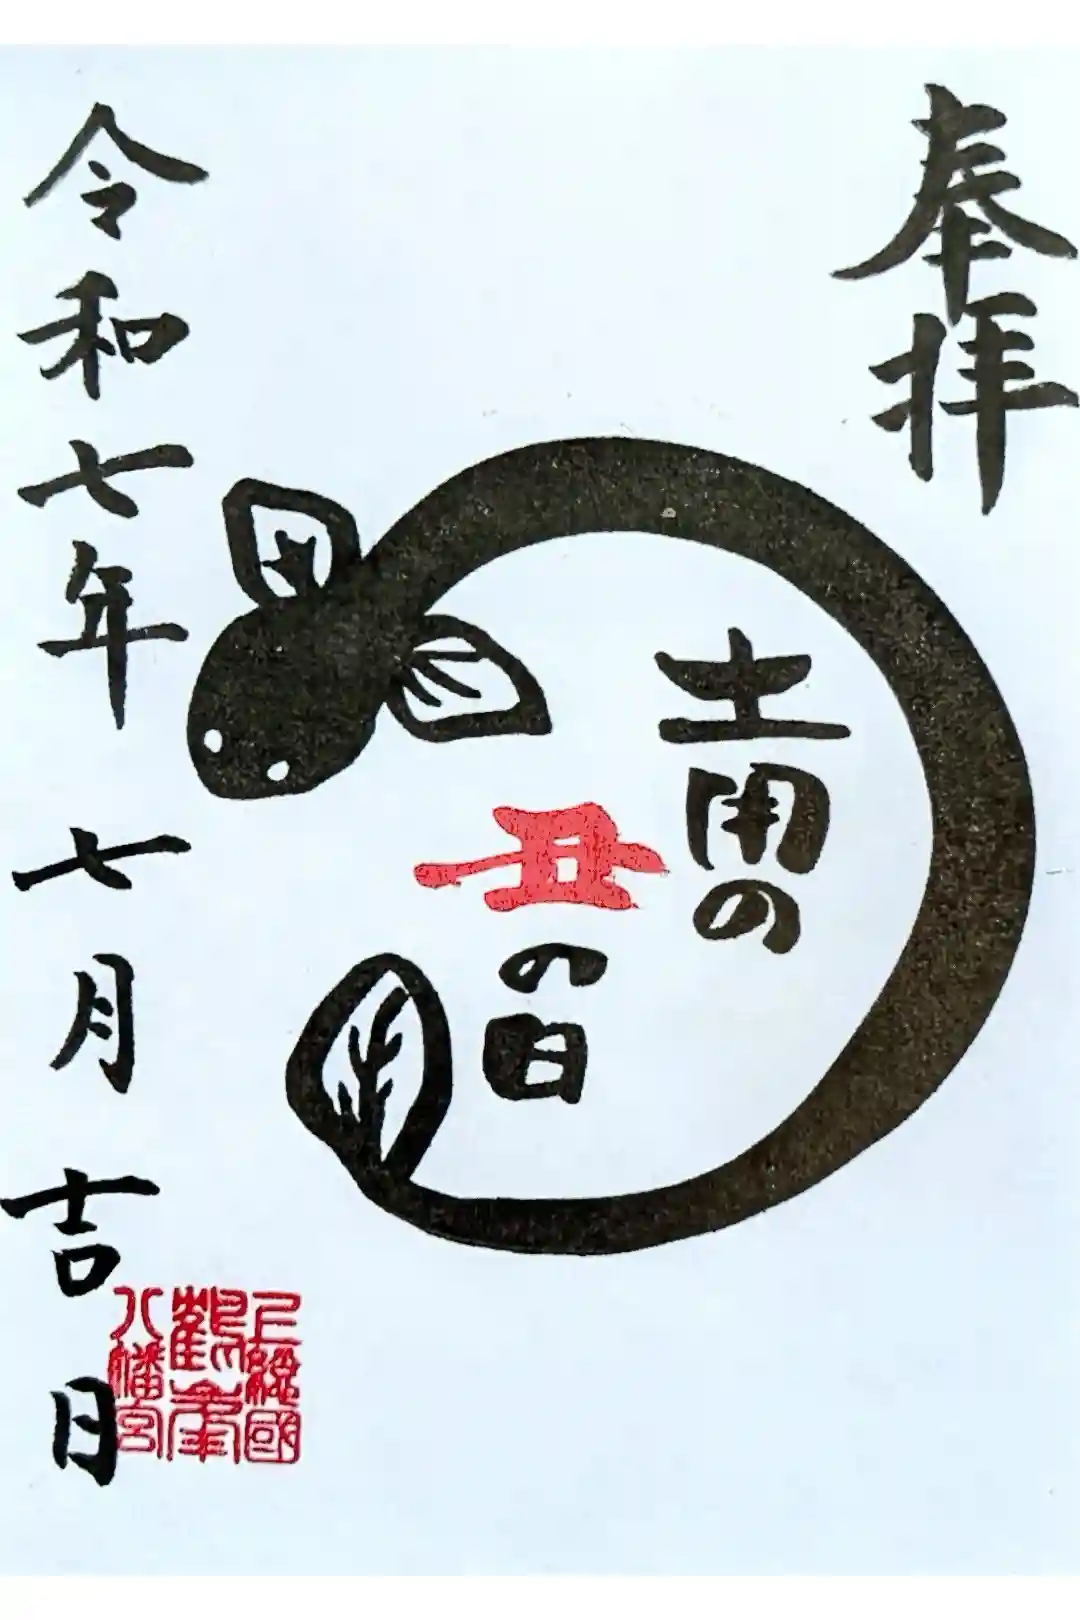 奉拝
土用の
丑の日
令和七年七月吉日
上総國
鶴峯
八幡宮